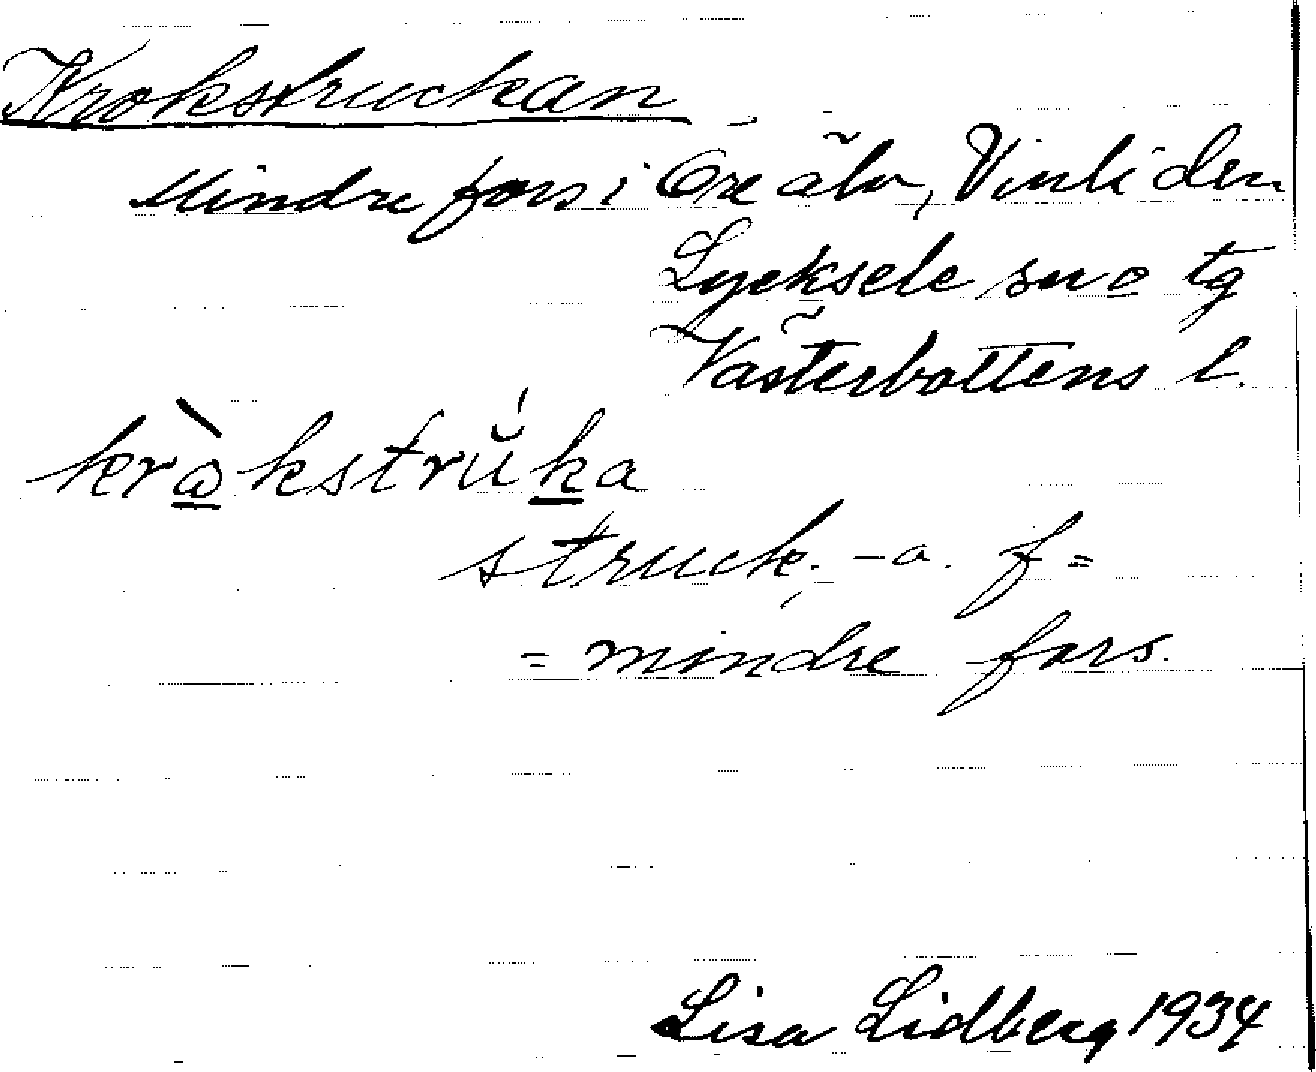 Krokstruckan
Mindre fors i Öre älv, Vinliden
Lycksele sn o tg
Västerbottens l.
kråkstruka
struck, -a. f =
= mindre fors.
Lisa Lidberg 1934